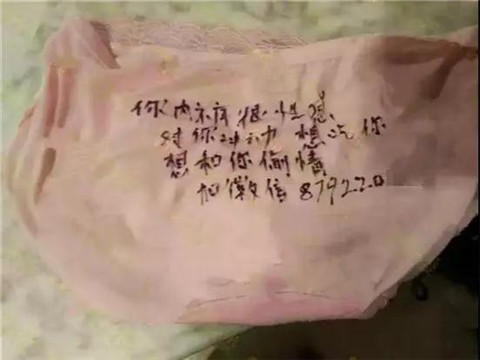 你内裤很性感、
对你冲动 想泡你
想和你偷情
加微信 87922